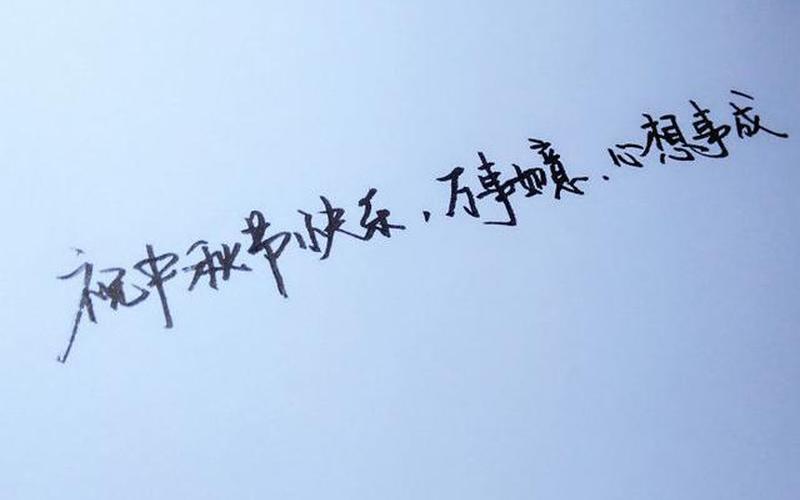 祝中秋节快乐,万事如意.心想事成